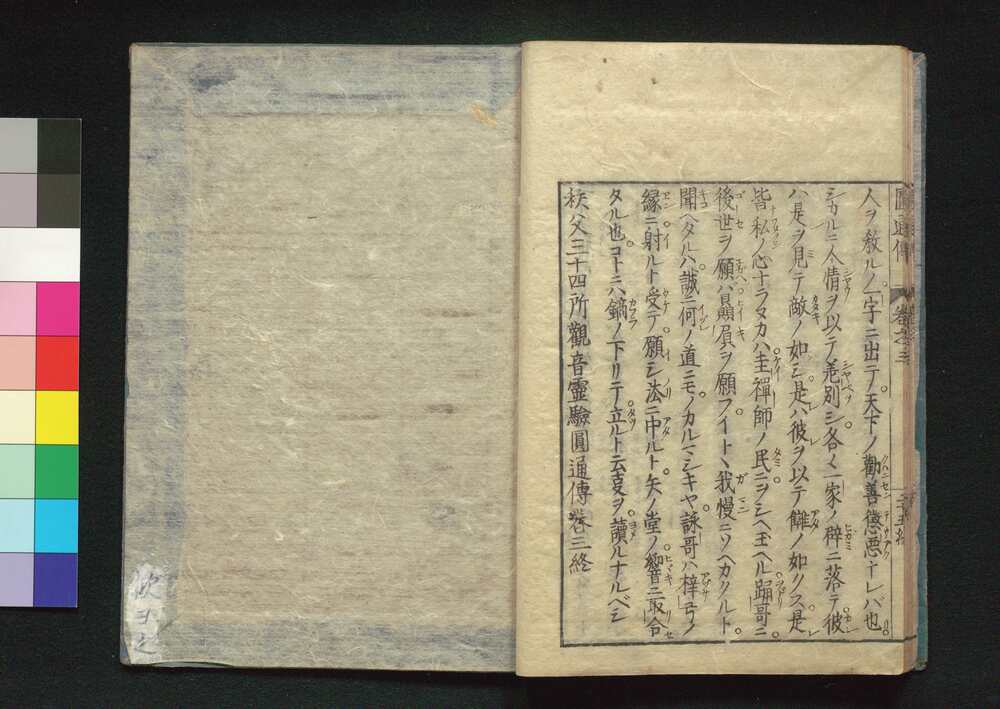 圓通傳 卷之三 二十五終
人ヲ敎ルノ一字ニ出テ天下ノ勸善懲悪ナレバ也
シカルニ人情ヲ以テ差別シ各〻一家ノ辟ニ落テ彼
ハ是ヲ見テ敵ノ如シ是ハ彼ヲ以テ讎ノ如クス是
皆私ノ心ナラズカハ圭禪師ノ民ニヲシヘ玉ヘル踊哥ニ
後世ヲ願ハ贔屓ヲ願フイト丶我慢ニソヘカクルト
聞ヘタルハ誠ニ何ノ道ニモノカルマシキヤ詠哥ハ梓弓ノ
縁ニ射ルト受テ願シ法ニ中ルト矢ノ堂ノ響ニ取合
タル也コトニハ鏑ノ下リテ立ルト云支ヲ讀ルナルベシ
秩父三十四所觀音靈驗圓通傳卷三終